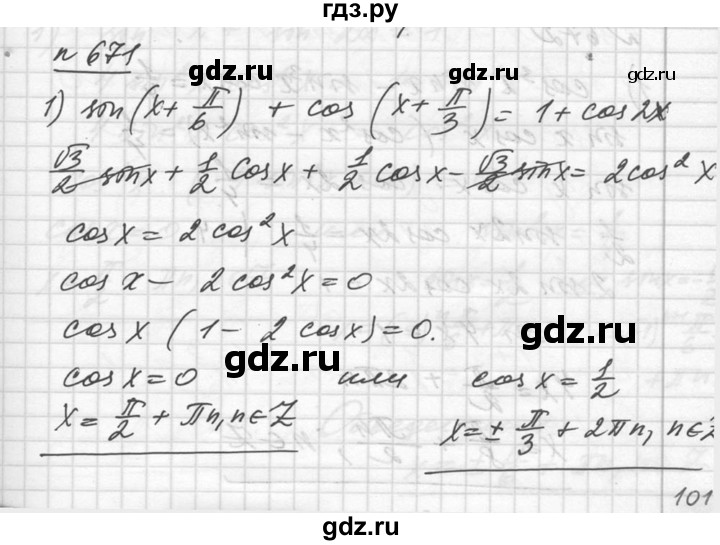 гдз.ру
n 671
gdz.ru gdz.ru gdz.ru
1) sin(x + π/6) + cos(x + π/3) = 1 + cos2x
√3/2 sinx + 1/2 cosx + 1/2 cosx - √3/2 sinx = 2cos²x
cosx = 2cos²x
cosx - 2cos²x = 0
cosx (1 - 2cosx) = 0.
gdz.ru gdz.ru
cosx = 0 или cosx = 1/2
x = π/2 + πn, n∈Z x = ± π/3 + 2πn, n∈Z
101
gdz.ru